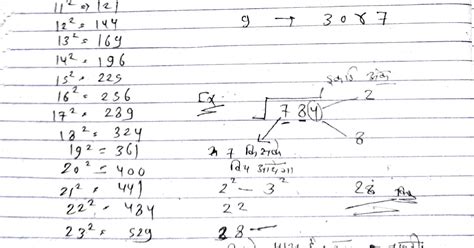 11² = 121
12² = 144
13² = 169
14² = 196
15² = 225
16² = 256
17² = 289
18² = 324
19² = 361
20² = 400
21² = 441
22² = 484
23² = 529
9 → 3 or 7
इकाई अंक
Ex
√784
2
8
7 किसके
बिच आयेगा
2² - 3²
28
22
28